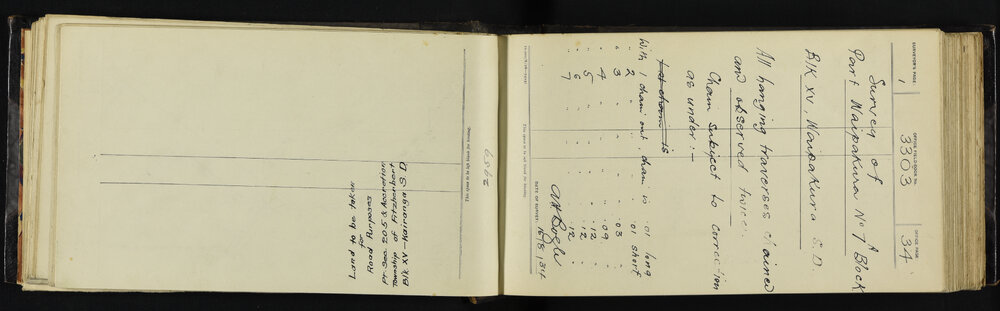 6592
Land to be taken
for
Road Purposes
Pt Sec. 205 & Accretion
Township of Fitzherbert
Blk XV – Kairanga S.D
This space to be left blank for binding.
SURVEYOR'S PAGE
1
OFFICE FIELD-BOOK No.
3303
OFFICE PAGE
34
Survey of
Part Waipakura No 7A Block
Blk XV, Waipakura S.D.
All hanging traverses chained
and observed twice.
Chain subject to correction
as under:-
With 1 chain out, chain is .01 long
" 2 " " " " .01 short
" 3 " " " " .03 "
" 4 " " " " .09 "
" 5 " " " " .12 "
" 6 " " " " .12 "
" 7 " " " " .12 "
DATE OF SURVEY: 16/8/34
This space to be left blank for binding.